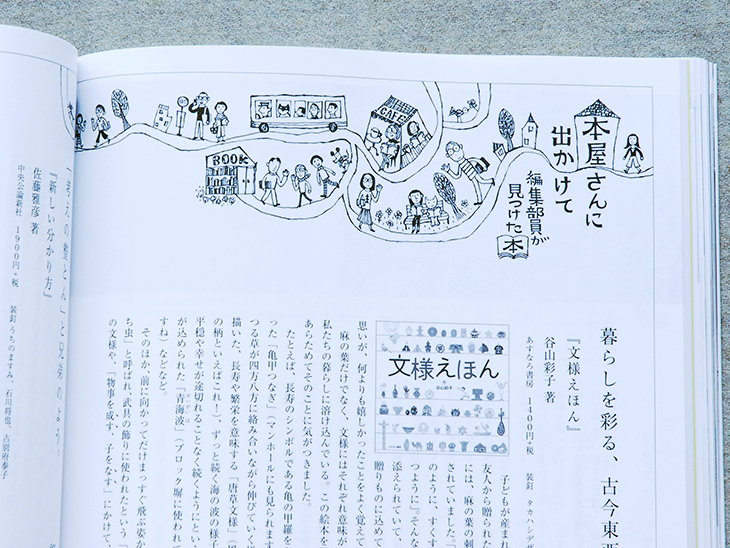 本屋さんに
出かけて
編集部員が
見つけた本
CAFE
BOOK
暮らしを彩る、古今東西
『文様えほん』
谷山彩子 著
あすなろ書房 1400円+税 装釘 タカハシデザ
文様えほん
子どもが産まれ
友人から贈られた
には、麻の葉の刺
されていました。「
のように、すくす
つように」。そんな
添えられていて、
贈りものに込めて
思いが、何よりも嬉しかったことをよく覚えて
麻の葉だけでなく、文様にはそれぞれ意味が
私たちの暮らしに溶け込んでいる。この絵本を
あらためてそのことに気がつきました。
たとえば、長寿のシンボルである亀の甲羅を
った「亀甲つなぎ」（マンホールにも見られます
つる草が四方八方に絡み合いながら伸びていく
描いた、長寿や繁栄を意味する「唐草文様」（
の柄といえばこれ！）、ずっと続く海の波の様子
平穏や幸せが途切れることなく続くようにとい
が込められた「青海波」（ブロック塀に使われて
すね）などなど。
そのほか、前に向かってだけまっすぐ飛ぶ姿か
ち虫」と呼ばれ武具の飾りに使われたという「
の文様や、「物事を成す、子をなす」にかけて、
「考えの整とん」と兄弟のよう。
『新しい分かり方』
佐藤雅彦 著
中央公論新社 1900円+税 装釘 うちのますみ、石川将也、古別府泰子